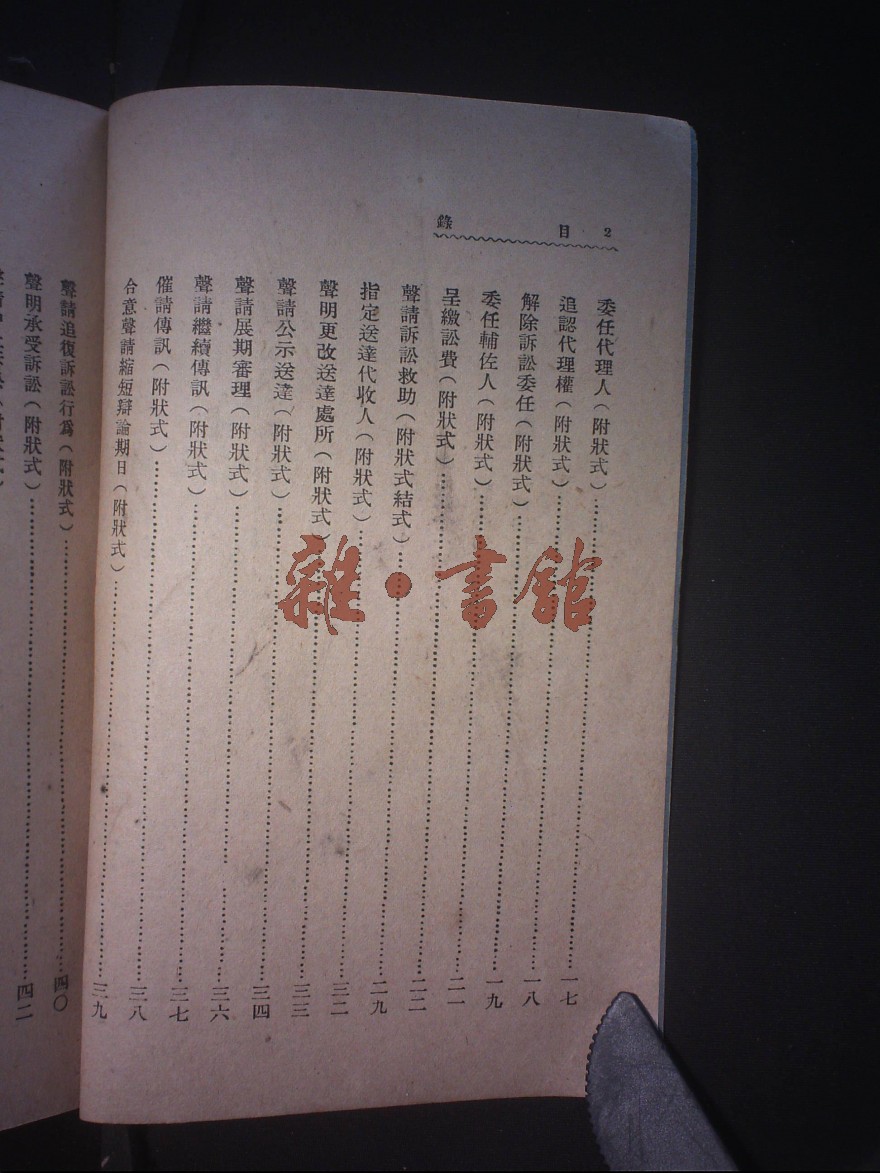 2 目 錄
委任代理人(附狀式)……一七
追認代理權(附狀式)……一八
解除訴訟委任(附狀式)……一九
委任輔佐人(附狀式)……二一
呈繳訟費(附狀式)……二二
聲請訴訟救助(附狀式結式)……二九
指定送達代收人(附狀式)……三二
聲明更改送達處所(附狀式)……三三
聲請公示送達(附狀式)……三四
聲請展期審理(附狀式)……三六
聲請繼續傳訊(附狀式)……三七
催請傳訊(附狀式)……三八
合意聲請縮短辯論期日(附狀式)……三九
聲請追復訴訟行爲(附狀式)……四〇
聲明承受訴訟(附狀式)……四二
雜·書館